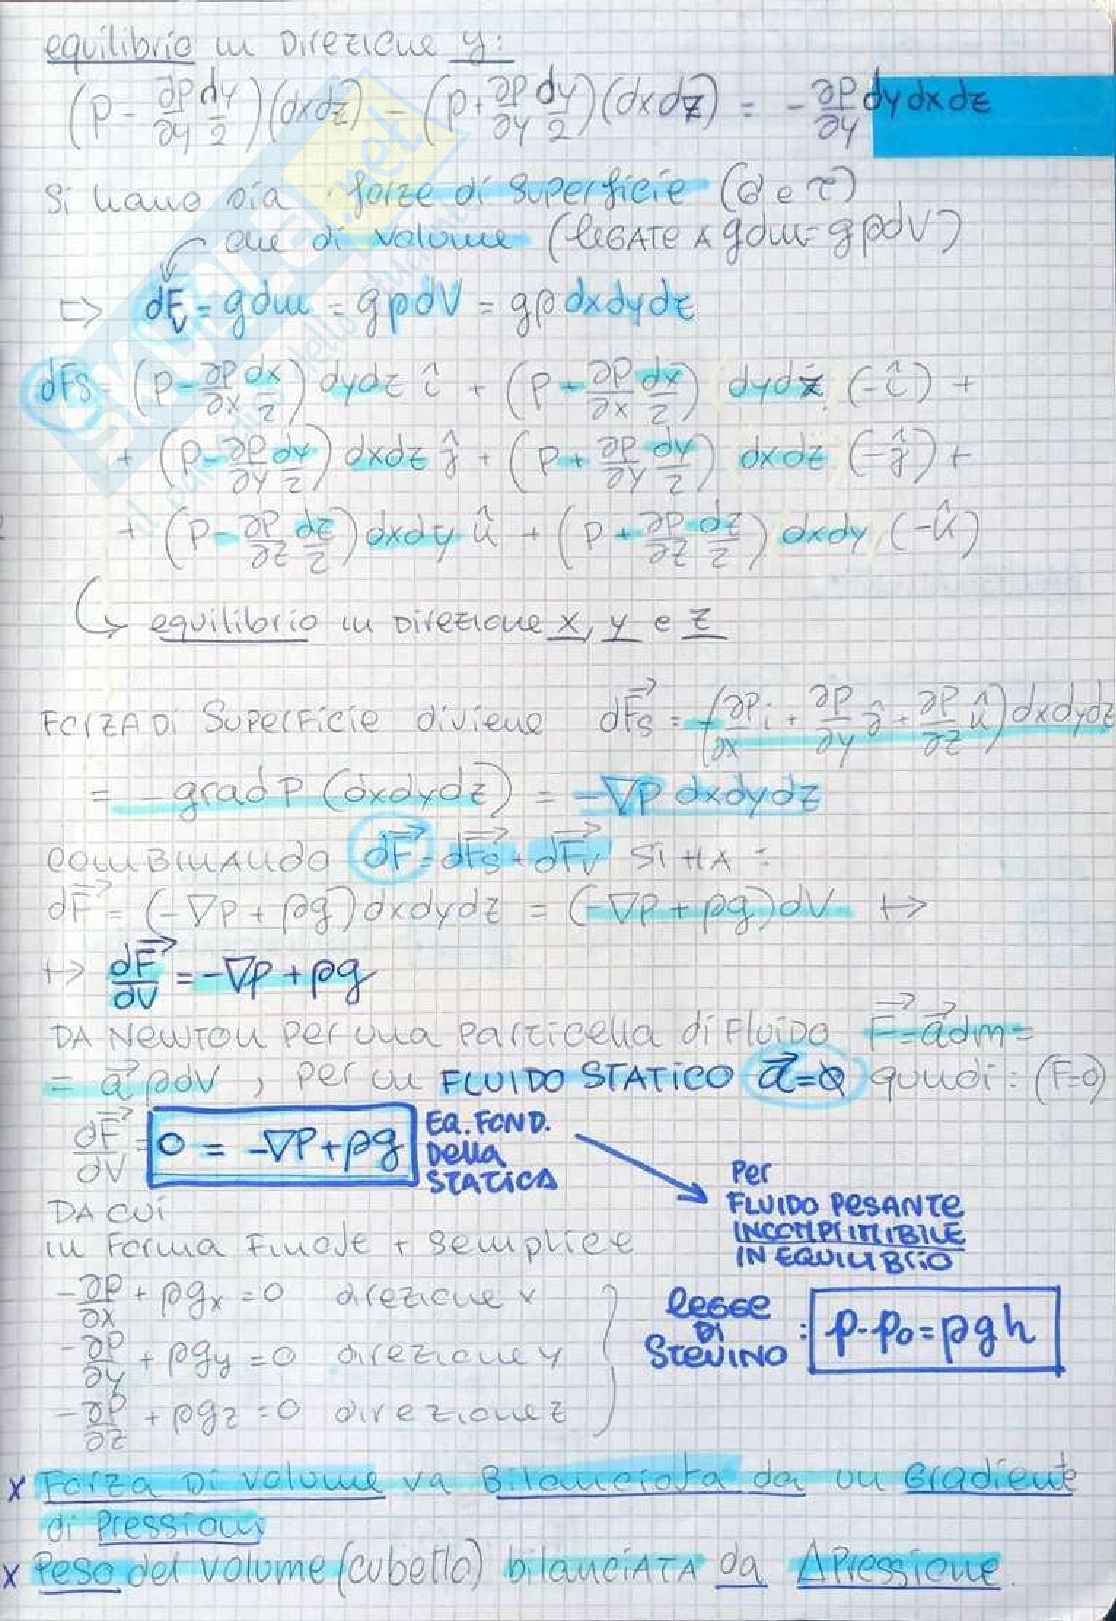 equilibrio in Direzione y:
(p - ∂p/∂y dy/2)(dxdz) - (p + ∂p/∂y dy/2)(dxdz) = - ∂p/∂y dydxdz
Si hanno sia forze di superficie (σ e τ)
che di volume (LEGATE A gdm = gρdV)
↳ dFv = gdm = gρdV = gρ dxdydz
dFs = (p - ∂p/∂x dx/2) dydz î + (p + ∂p/∂x dx/2) dydz (-î) +
+ (p - ∂p/∂y dy/2) dxdz ĵ + (p + ∂p/∂y dy/2) dxdz (-ĵ) +
+ (p - ∂p/∂z dz/2) dxdy k̂ + (p + ∂p/∂z dz/2) dxdy (-k̂)
↳ equilibrio in Direzione x, y e z
FORZA Di Superficie diviene dF⃗s = -(∂p/∂x i + ∂p/∂y ĵ + ∂p/∂z k̂) dxdydz
= - grad P (dxdydz) = -∇p dxdydz
COMBINANDO dF⃗ = dF⃗s + dF⃗v Si HA =
dF⃗ = (-∇p + ρg) dxdydz = (-∇p + ρg) dV ↦
↦ dF⃗/dV = -∇p + ρg
DA NEWTON Per una Particella di Fluido F⃗ = a⃗ dm =
= a⃗ ρdV, Per un FLUIDO STATICO a⃗ = 0 quindi: (F=0)
dF⃗/dV = 0 = -∇P + ρg EQ. FOND. Della STATICA
Per
FLUIDO PESANTE
INCOMPRIMIBILE
IN EQUILIBRIO
DA CUI
in Forma Finale + semplice
-∂p/∂x + ρgx = 0 direzione x
-∂p/∂y + ρgy = 0 direzione y
-∂p/∂z + ρgz = 0 direzione z
legge DI STEVINO : p - p0 = ρgh
x Forza Di Volume va Bilanciata da un Gradiente
di Pressioni
x Peso del volume (cubetto) bilanciATA da ΔPressione.